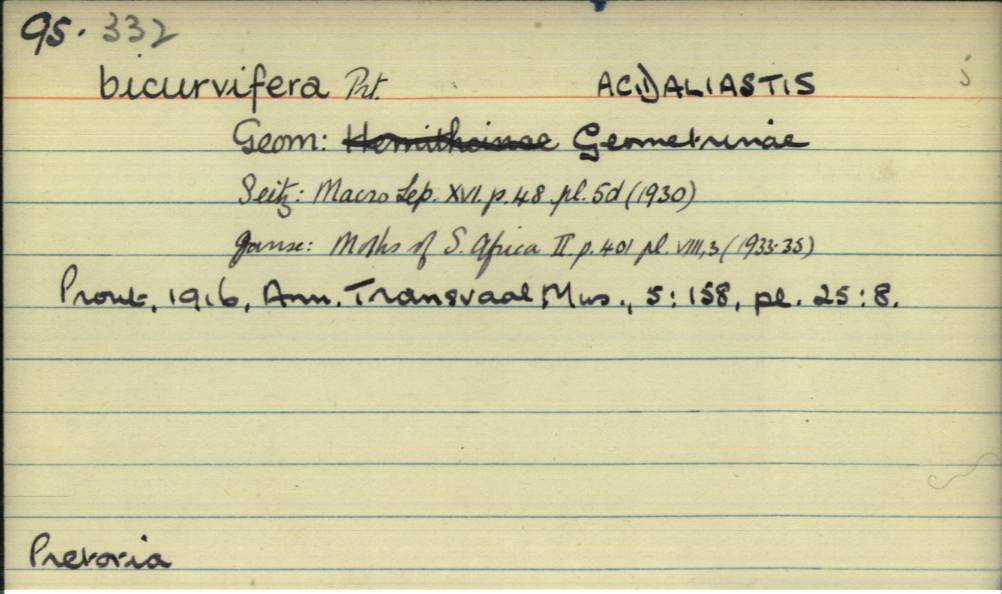 95. 332
bicurvifera Prt. ACIDALIASTIS
Geom: Hemitheinae Geometrinae
Seitz: Macro Lep. XVI. p. 48. pl. 5d (1930)
Janse: Moths of S. Africa II. p. 401 pl. VIII, 3 (1933-35)
Prout, 1916, Ann. Transvaal Mus., 5: 158, pl. 25: 8.
Pretoria